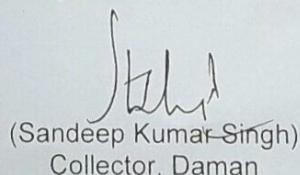 (Sandeep Kumar Singh)
Collector, Daman